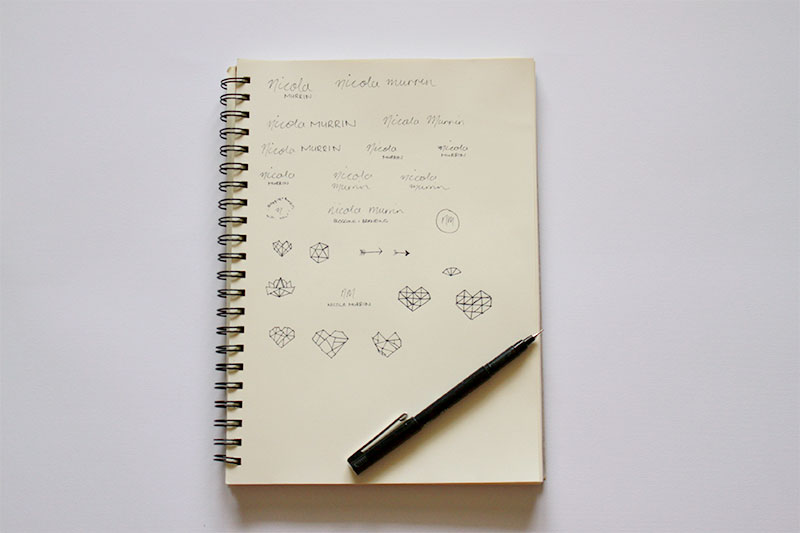 nicola nicola murrin
MURRIN
nicola MURRIN Nicola Murrin
nicola MURRIN nicola nicola
MURRIN MURRIN
nicola nicola nicola
MURRIN murrin murrin
nicola murrin
NM
NM
NICOLA MURRIN